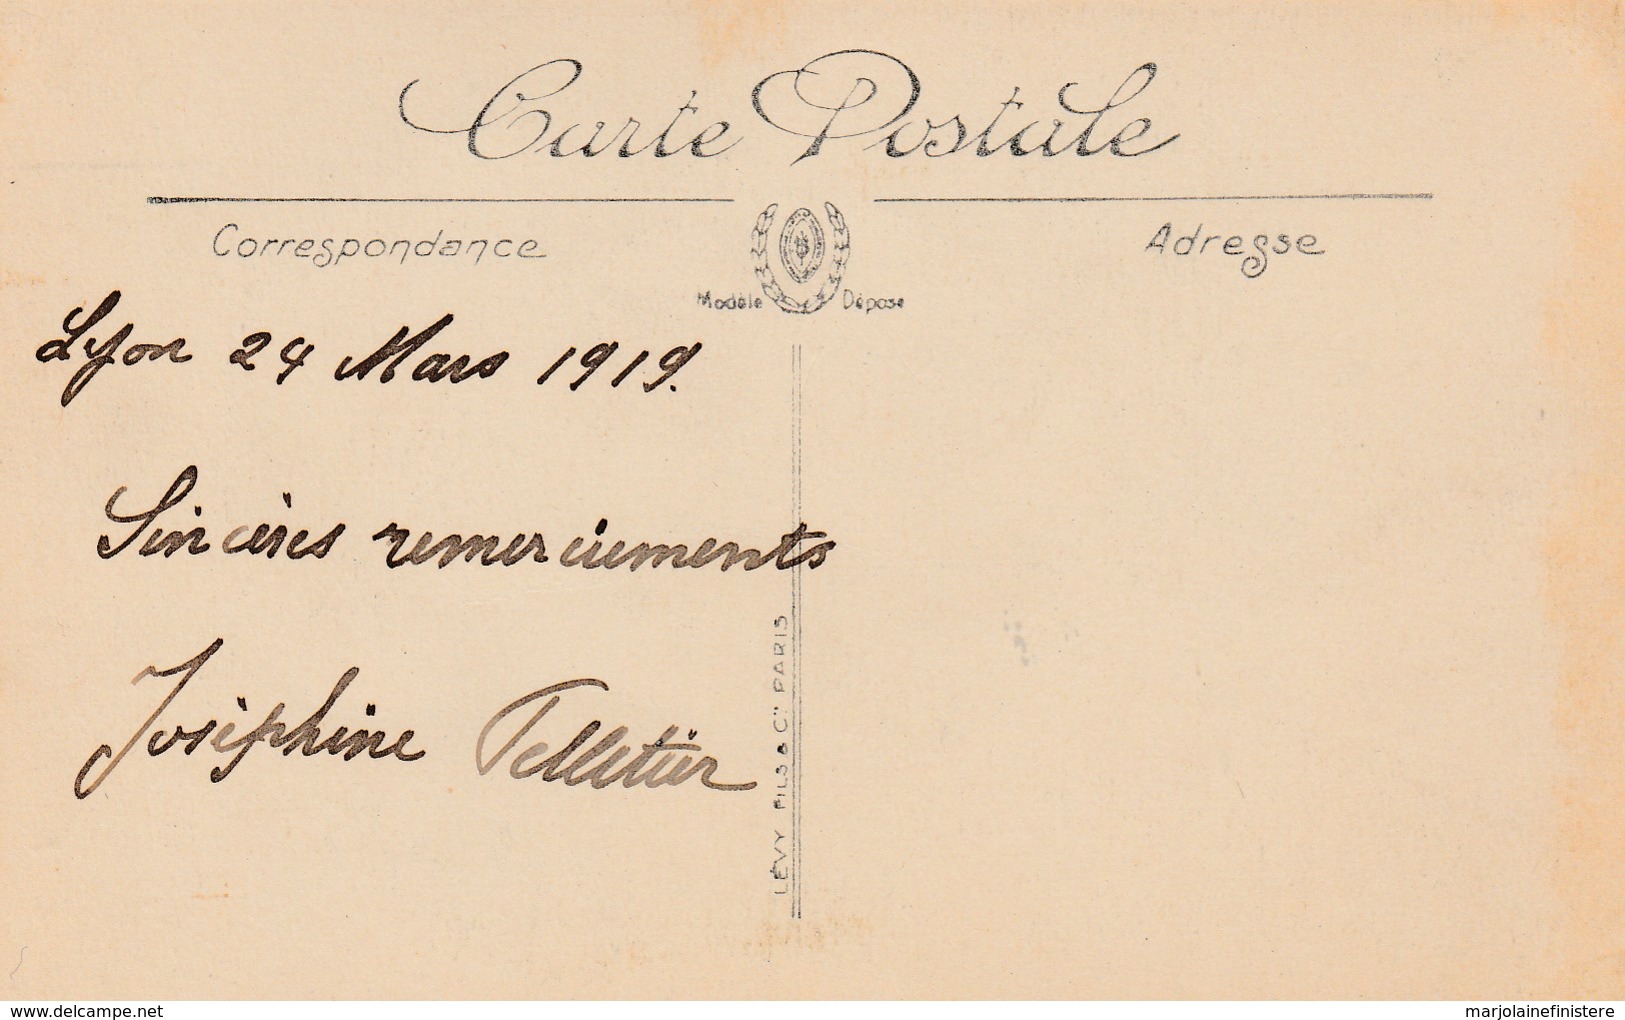 Carte Postale
Correspondance
Adresse
Modèle Déposé
Lyon 24 Mars 1919.
Sincères remerciements
Joséphine Pelletier
LÉVY FILS & Cie PARIS
delcampe.net
marjolainefinistere